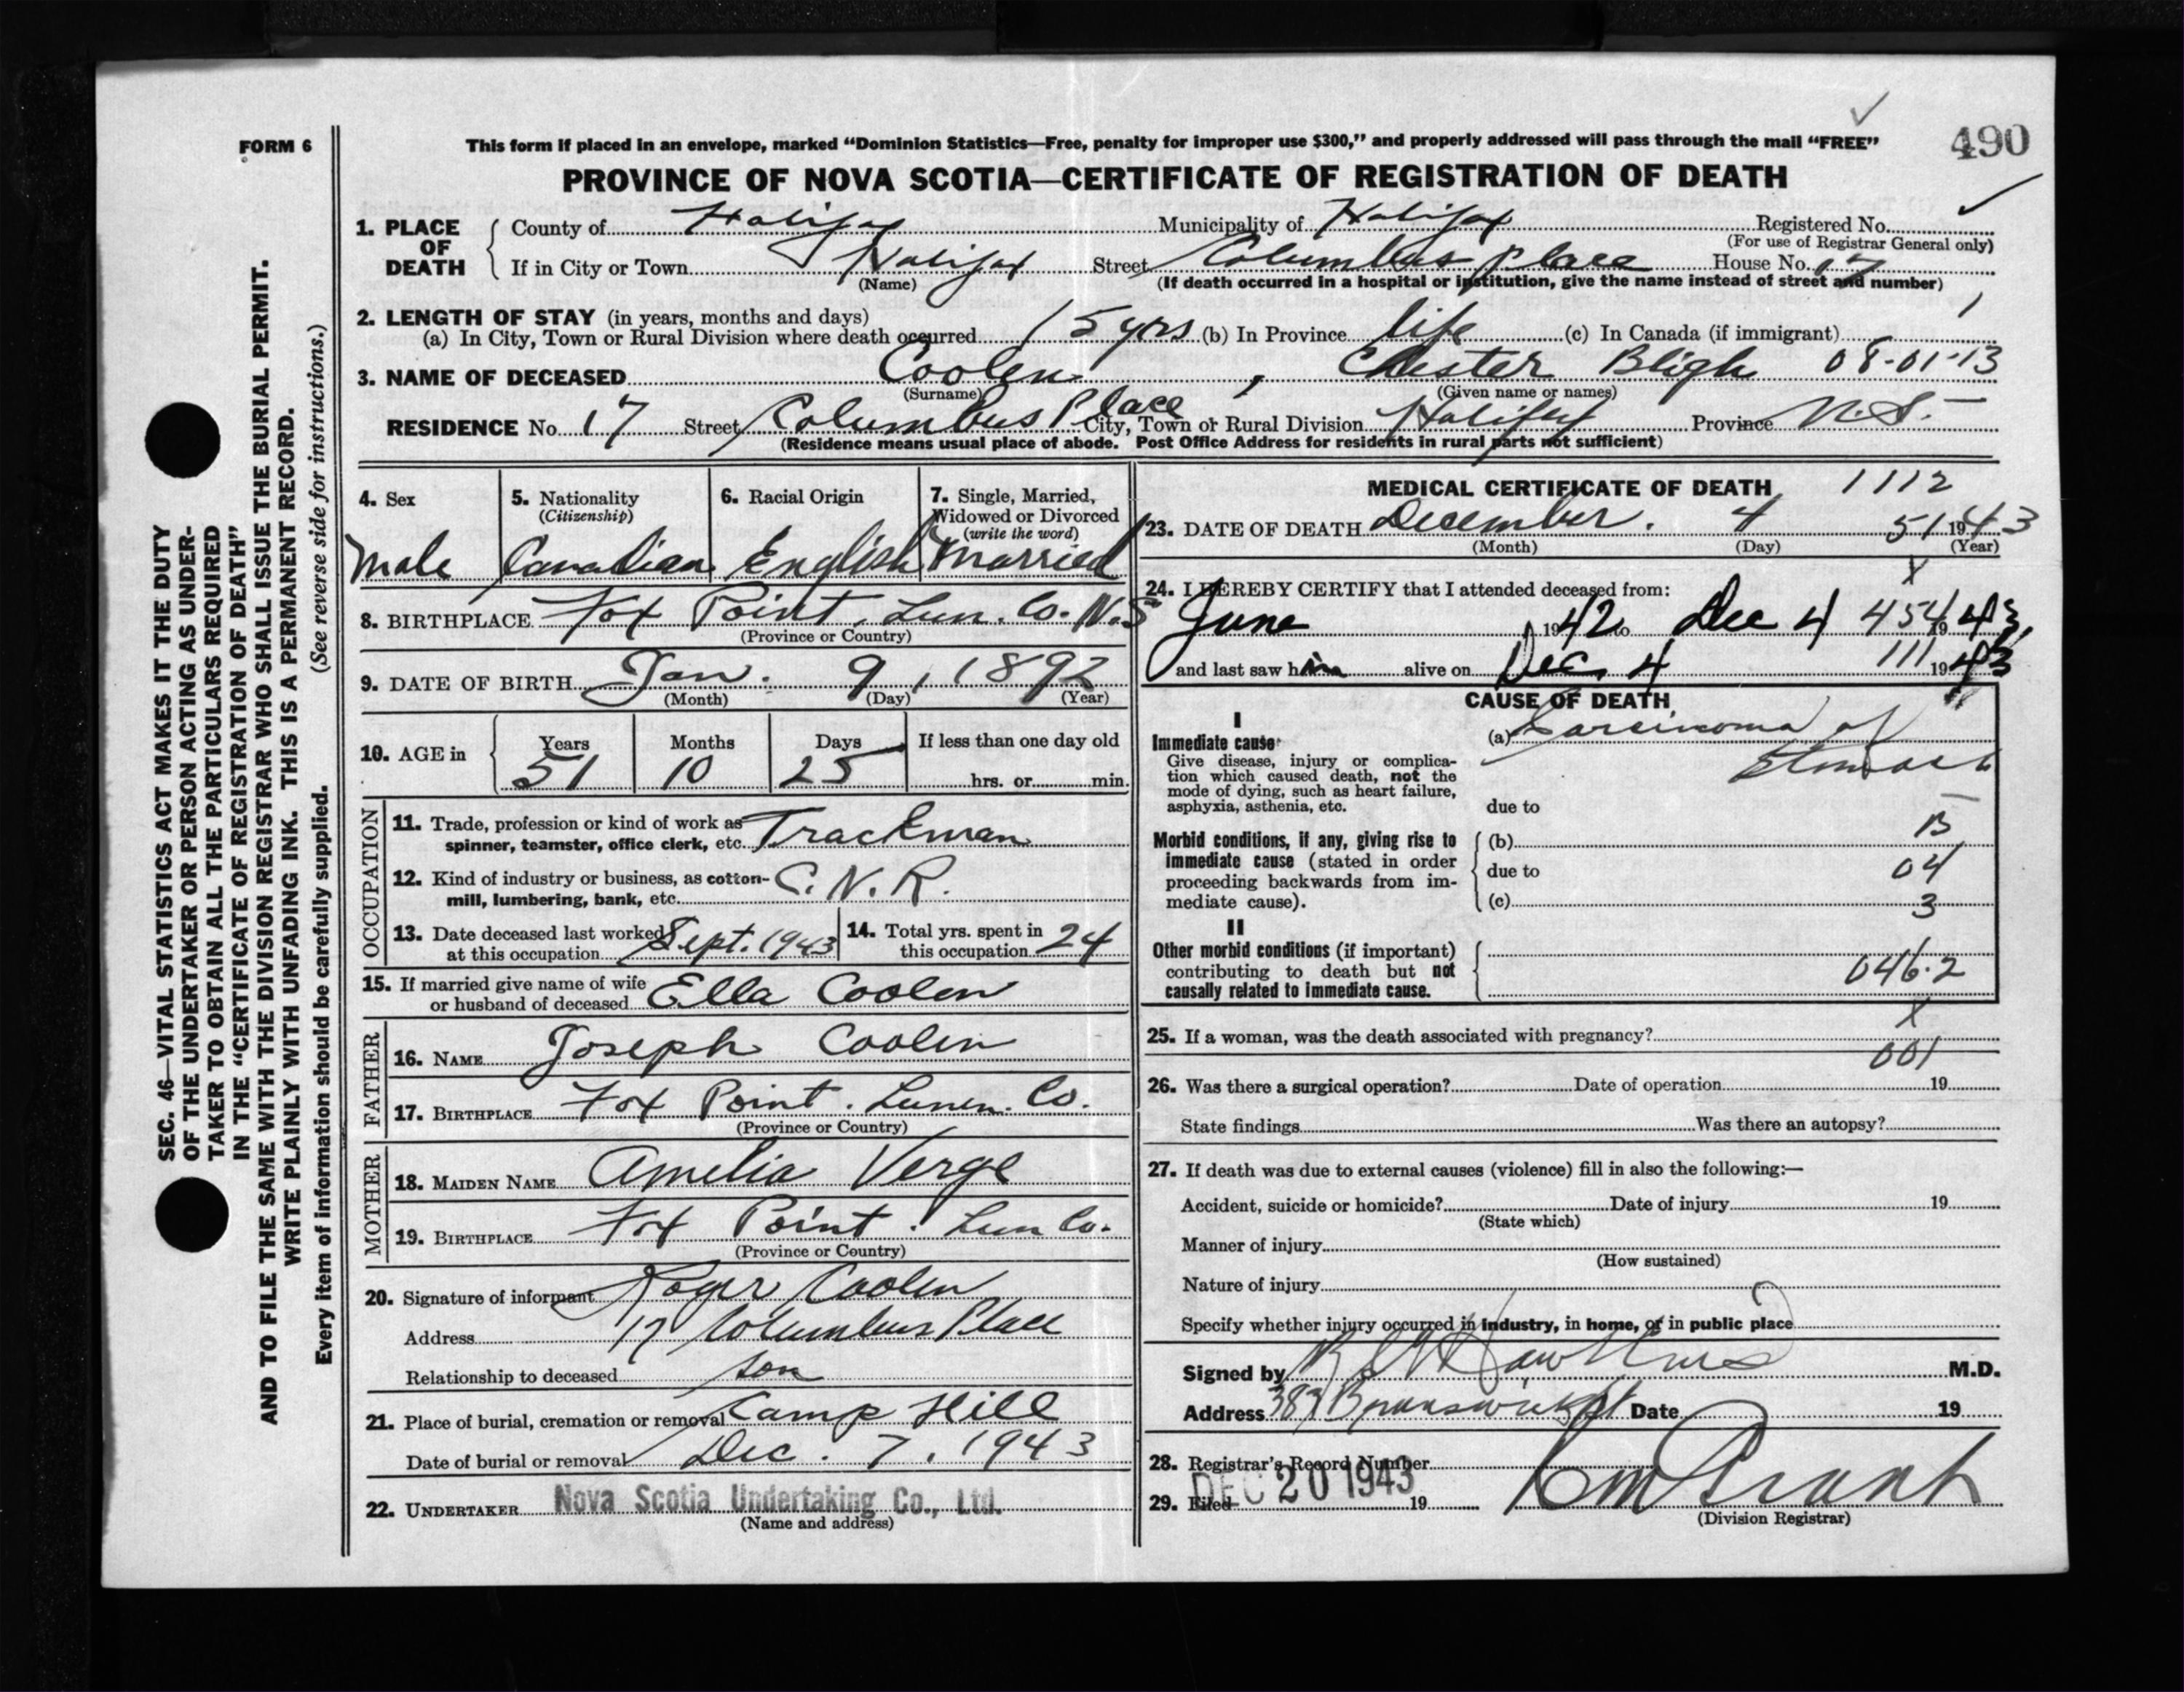 FORM 6
This form if placed in an envelope, marked “Dominion Statistics—Free, penalty for improper use $300,” and properly addressed will pass through the mail “FREE”
490
PROVINCE OF NOVA SCOTIA—CERTIFICATE OF REGISTRATION OF DEATH
1. PLACE OF DEATH
County of Halifax Municipality of Halifax Registered No.
(For use of Registrar General only)
If in City or Town Halifax Street Columbus Place House No. 17
(Name) (If death occurred in a hospital or institution, give the name instead of street and number)
2. LENGTH OF STAY (in years, months and days) 1
(a) In City, Town or Rural Division where death occurred 15 yrs (b) In Province life (c) In Canada (if immigrant)
3. NAME OF DECEASED Coolen, Chester Bligh 08-01-13
(Surname) (Given name or names)
RESIDENCE No. 17 Street Columbus Place City, Town or Rural Division Halifax Province N.S.
(Residence means usual place of abode. Post Office Address for residents in rural parts not sufficient)
4. Sex 5. Nationality 6. Racial Origin 7. Single, Married,
(Citizenship) Widowed or Divorced
(write the word)
Male Canadian English Married
8. BIRTHPLACE Fox Point, Lun. Co. N.S
(Province or Country)
9. DATE OF BIRTH Jan. 9, 1892
(Month) (Day) (Year)
10. AGE in Years Months Days If less than one day old
51 10 25 hrs. or min.
OCCUPATION
11. Trade, profession or kind of work as
spinner, teamster, office clerk, etc. Trackman
12. Kind of industry or business, as cotton-
mill, lumbering, bank, etc. C.N.R.
13. Date deceased last worked
at this occupation Sept. 1943
14. Total yrs. spent in
this occupation 24
15. If married give name of wife
or husband of deceased Ella Coolen
FATHER
16. NAME Joseph Coolen
17. BIRTHPLACE Fox Point. Lunen. Co.
(Province or Country)
MOTHER
18. MAIDEN NAME Amelia Verge
19. BIRTHPLACE Fox Point. Lun Co.
(Province or Country)
20. Signature of informant Roger Coolen
Address 17 Columbus Place
Relationship to deceased son
21. Place of burial, cremation or removal Camp Hill
Date of burial or removal Dec. 7, 1943
22. UNDERTAKER Nova Scotia Undertaking Co., Ltd.
(Name and address)
MEDICAL CERTIFICATE OF DEATH 1112
23. DATE OF DEATH December. 4 51 1943
(Month) (Day) (Year)
24. I HEREBY CERTIFY that I attended deceased from: X
June 1942 to Dec 4 454 1943
and last saw him alive on Dec. 4 111 1943
CAUSE OF DEATH
I
Immediate cause
Give disease, injury or complica-
tion which caused death, not the
mode of dying, such as heart failure,
asphyxia, asthenia, etc.
(a) Carcinoma of
Stomach
due to
Morbid conditions, if any, giving rise to
immediate cause (stated in order
proceeding backwards from im-
mediate cause).
(b) 13
due to 04
(c) 3
II
Other morbid conditions (if important)
contributing to death but not
causally related to immediate cause.
046.2
X
25. If a woman, was the death associated with pregnancy?
001
26. Was there a surgical operation? Date of operation 19
State findings Was there an autopsy?
27. If death was due to external causes (violence) fill in also the following:—
Accident, suicide or homicide? Date of injury 19
(State which)
Manner of injury
(How sustained)
Nature of injury
Specify whether injury occurred in industry, in home, or in public place
Signed by M.D.
Address 389 Brunswick St Date 19
28. Registrar's Record Number
DEC 20 1943
29. Filed 19
(Division Registrar)
SEC. 46—VITAL STATISTICS ACT MAKES IT THE DUTY
OF THE UNDERTAKER OR PERSON ACTING AS UNDER-
TAKER TO OBTAIN ALL THE PARTICULARS REQUIRED
IN THE “CERTIFICATE OF REGISTRATION OF DEATH”
AND TO FILE THE SAME WITH THE DIVISION REGISTRAR WHO SHALL ISSUE THE BURIAL PERMIT.
WRITE PLAINLY WITH UNFADING INK. THIS IS A PERMANENT RECORD.
(See reverse side for instructions.)
Every item of information should be carefully supplied.